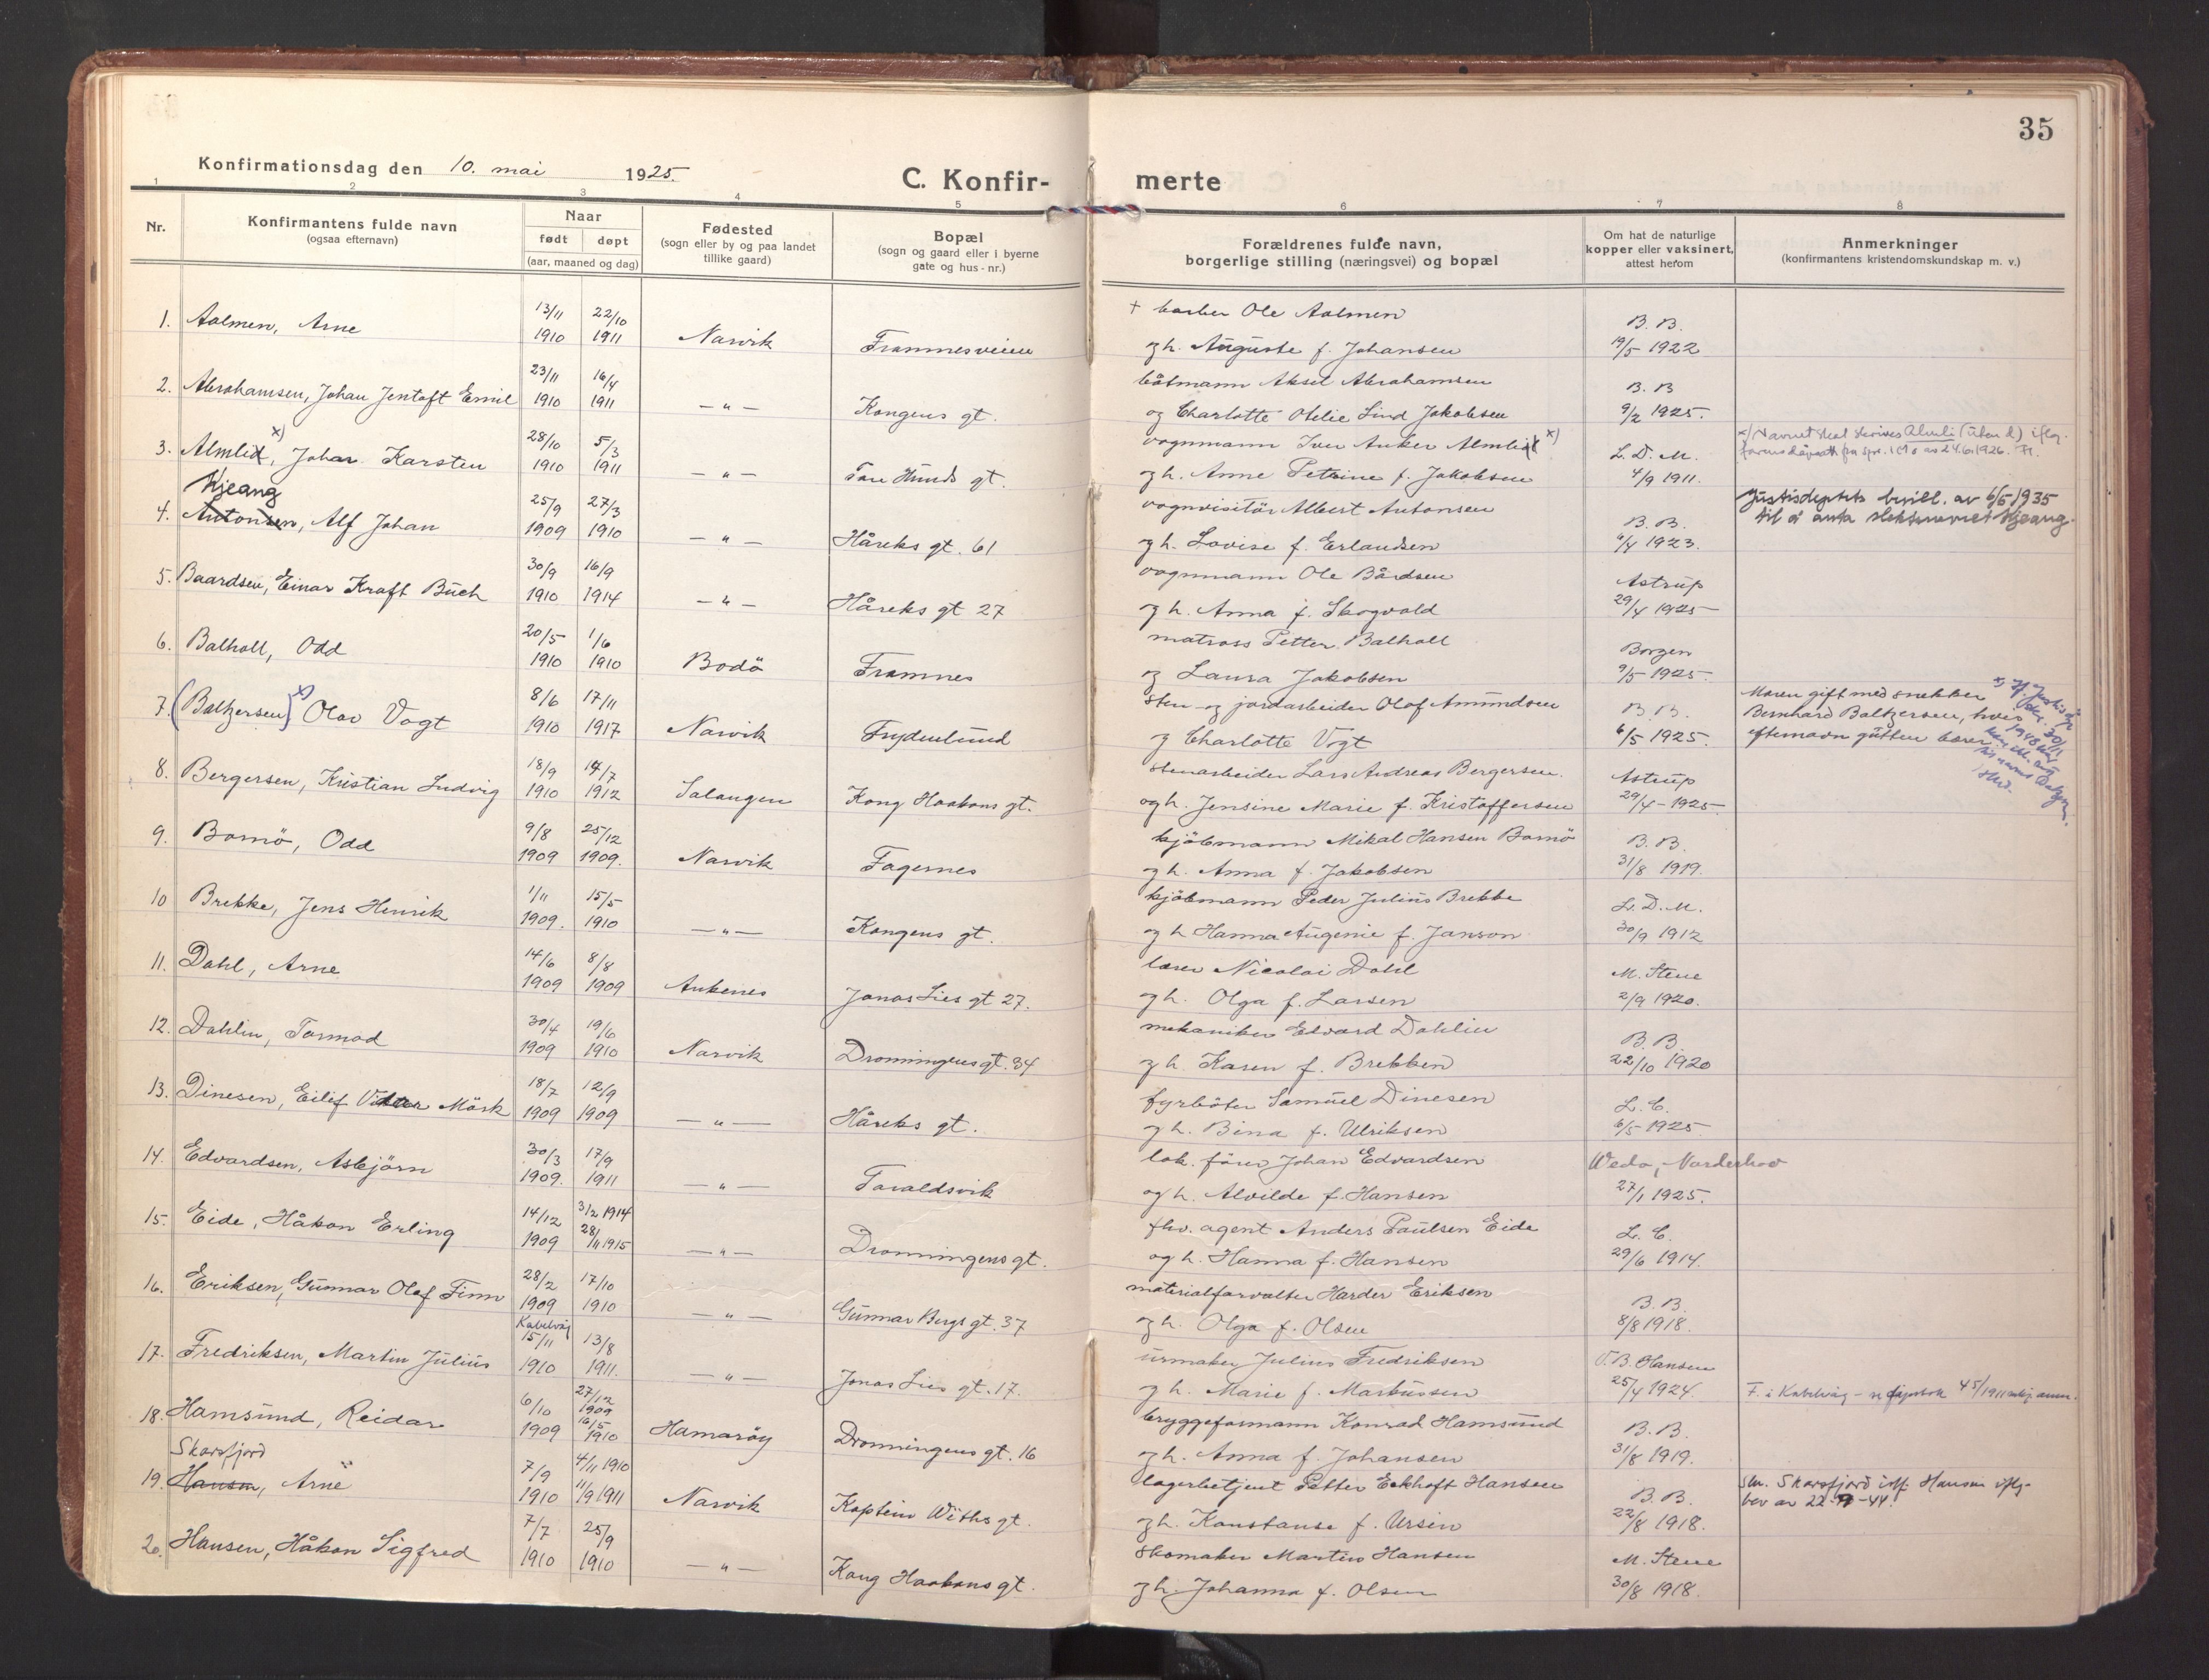 35
Konfirmationsdag den 10. mai 1925.
C. Konfir- merte
1 2 3 4 5 6 7 8
Nr.
Konfirmantens fulde navn
(ogsaa efternavn)
Naar
født døpt
(aar, maaned og dag)
Fødested
(sogn eller by og paa landet
tillike gaard)
Bopæl
(sogn og gaard eller i byerne
gate og hus-nr.)
Forældrenes fulde navn,
borgerlige stilling (næringsvei) og bopæl
Om hat de naturlige
kopper eller vaksinert,
attest herom
Anmerkninger
(konfirmantens kristendomskundskap m. v.)
1. Aalmen, Arne 13/11 1910 22/10 1911 Narvik Framnesveien
+ barber Ole Aalmen
og h. Auguste f. Johansen
B. B.
19/5 1922
2. Abrahamsen, Johan Jentoft Emil 23/11 1910 16/4 1911 —"— Kongens gt.
båtmann Aksel Abrahamsen
og Charlotte Otelie Lind Jakobsen
B. B
9/2 1925.
3. Almlid x), Johan Karsten 28/10 1910 5/3 1911 —"— Tore Hunds gt.
vognmann Iver Anker Almlid x)
og h. Anne Petrine f. Jakobsen
L. D. M.
4/9 1911.
x) Navnet skal skrives Almli (uten d) iflg.
24.6.1926.
4. Antonsen, Alf Johan 25/9 1909 27/3 1910 —"— Håreks gt. 61
Hjeang
vognvisitör Albert Antonsen
og h. Lovise f. Erlandsen
B. B.
6/4 1923.
Justisdeptets bevill. av 6/5 1935
til å anta slektsnavnet Hjeang.
5. Baardsen, Einar Kraft Buch 30/9 1910 16/9 1914 —"— Håreks gt 27
vognmann Ole Bårdsen
og h. Anna f. Skogvold
Astrup
29/4 1925
6. Balholl, Odd 20/5 1910 1/6 1910 Bodö Framnes
matross Petter Balholl
og Laura Jakobsen
Borgen
9/5 1925.
7. (Baltzersen) x) Olav Vogt 8/6 1910 17/11 1917 Narvik Frydenlund
sten- og jordarbeider Olaf Amundsen
og Charlotte Vogt
B. B.
6/5 1925.
Moren gift med snekker
Bernhard Baltzersen, hvis
efternavn gutten bærer
8. Bergersen, Kristian Ludvig 18/9 1910 14/7 1912 Salangen Kong Haakons gt.
stenarbeider Lars Andreas Bergersen.
og h. Jensine Marie f. Kristoffersen
Astrup
29/4 - 1925
9. Bomö, Odd 9/8 1909 25/12 1909. Narvik Fagernes
kjöbmann Mikal Hansen Bomö
og h. Anna f. Jakobsen
B. B.
31/8 1919.
10 Brekke, Jens Henrik 1/11 1909. 15/5 1910 —"— Kongens gt.
kjöbmann Peder Julius Brekke
og h Hanna Augenie f. Janson
L. D. M.
30/9 1912
11. Dahl, Arne 14/6 1909 8/8 1909 Ankenes Jonas Lies gt 27.
lærer Nicolai Dahl
og h. Olga f. Larsen
M. Stene
2/9 1920.
12. Dahlin, Tormod 30/4 1909 19/6 1910 Narvik Dronningens gt. 34
mekaniker Edvard Dahlin
og h. Karen f. Brekken
B. B.
22/10 1920
13. Dinesen, Eilif Viktor Mörk 18/7 1909 12/9 1909 —"— Håreks gt.
fyrböter Samuel Dinesen
og h. Bina f. Ulriksen
L. C.
6/5 1925
14. Edvardsen, Asbjörn 30/3 1909. 17/9 1911 —"— Taraldsvik
lok. förer Johan Edvardsen
og h. Alvilde f. Hansen
Wedo, - Norderhov
27/1 1925.
15. Eide, Håkon Erling 14/12 1909 3/2 1914 28/11 1915 —"— Dronningens gt.
fhv. agent Anders Paulsen Eide
og h. Hanna f. Hansen
L. C.
29/6 1914.
16. Eriksen, Gunnar Olaf Finn 28/2 1909 17/10 1910 —"— Gunnar Bergs gt. 37
materialforvalter Harder Eriksen
og h. Olga f. Olsen
B. B.
8/8 1918.
17. Fredriksen, Martin Julius Kabelvåg 15/11 1910 13/8 1911. —"— Jonas Lies gt. 17.
urmaker Julius Fredriksen
og h. Marie f. Markussen
V. B. Hansen
25/4 1924.
F. i Kabelvåg - se dåpsbok 45/1911 anm.
18. Hamsund, Reidar 6/10 1909 27/12 1909 16/5 1910 Hamaröy Dronningens gt. 16
bryggeformann Konrad Hamsund
og h. Anna f. Johansen
B. B.
31/8 1919.
Skarsfjord
19. Hansen, Arne 7/9 1910 4/11 1910 11/9 1911 Narvik Kaptein Withs gt.
lagerbetjent Petter Eckhoft Hansen
og h. Konstanse f. Ursin
B. B.
22/8 1918.
Sln. Skarsfjord istf. Hansen iflg.
bev av 22-9-44.
20. Hansen, Håkon Sigfred 7/7 1910 25/9 1910 —"— Kong Haakons gt.
skomaker Martin Hansen
og h. Johanna f. Olsen
M. Stene
30/8 1918.